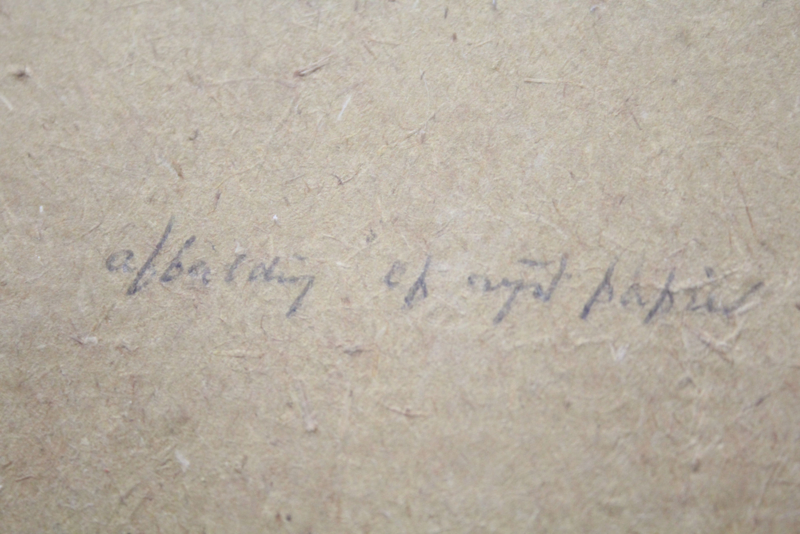 afbeelding op rijst papier